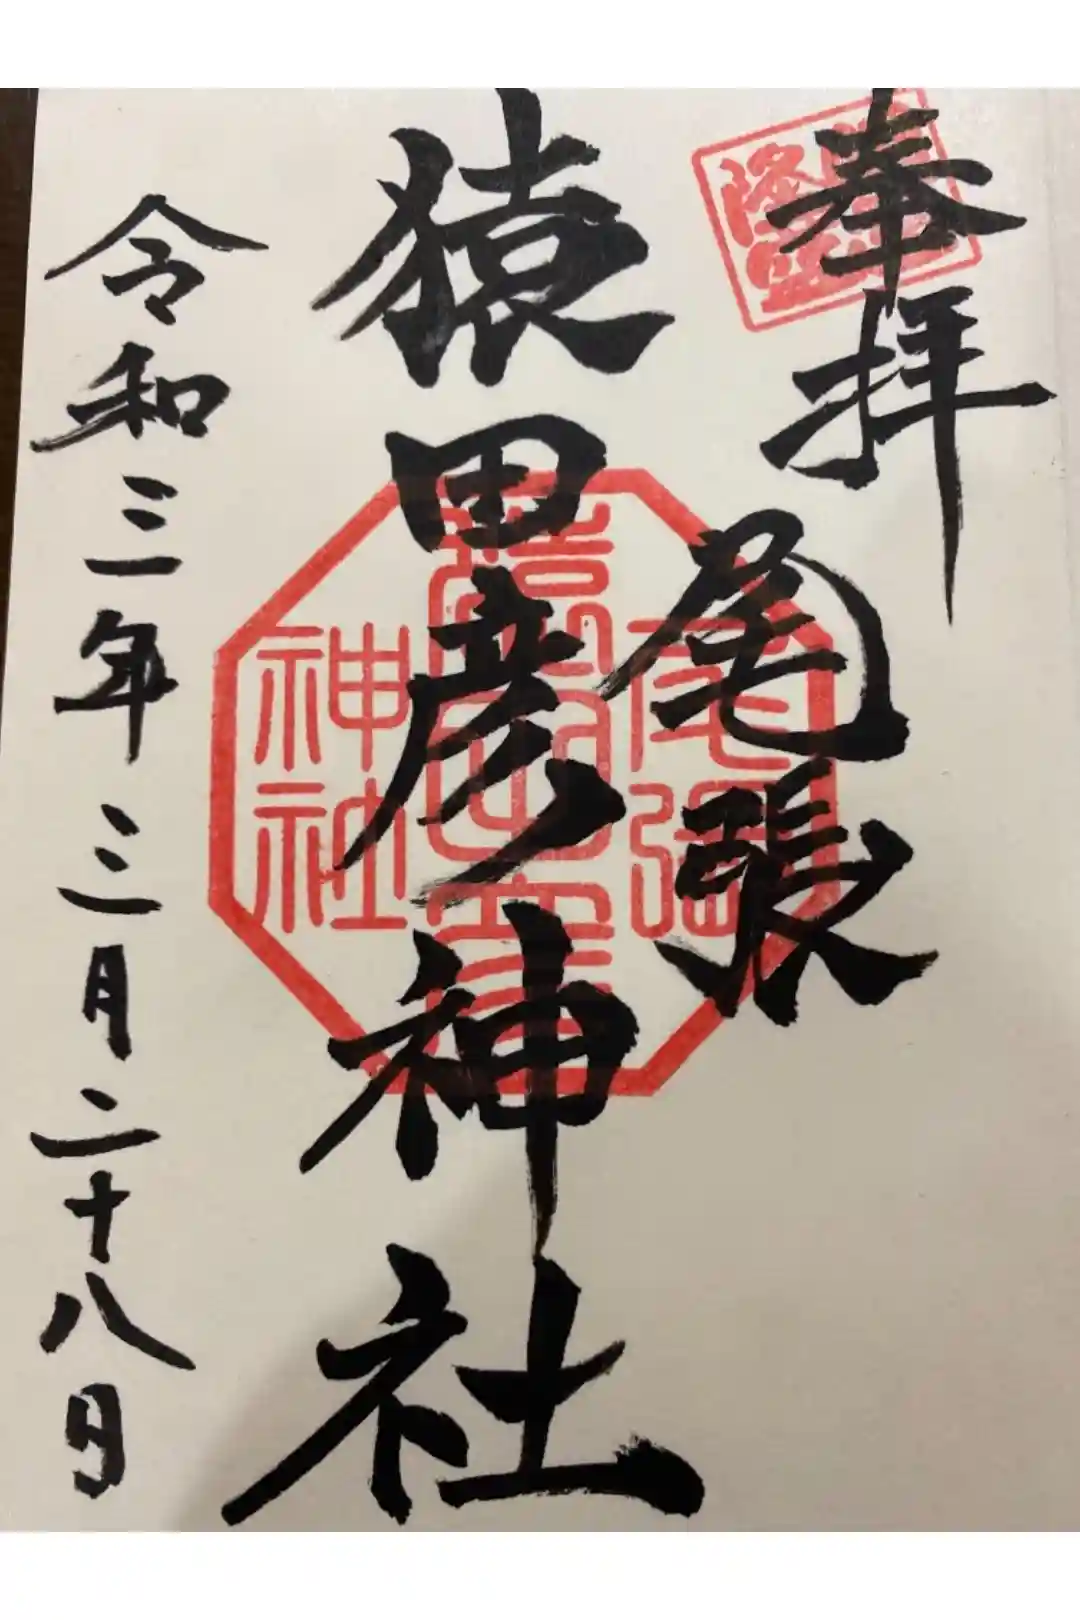 奉拝
尾張
猿田彦神社
令和三年三月二十八日
尾張
猿田彦
神社